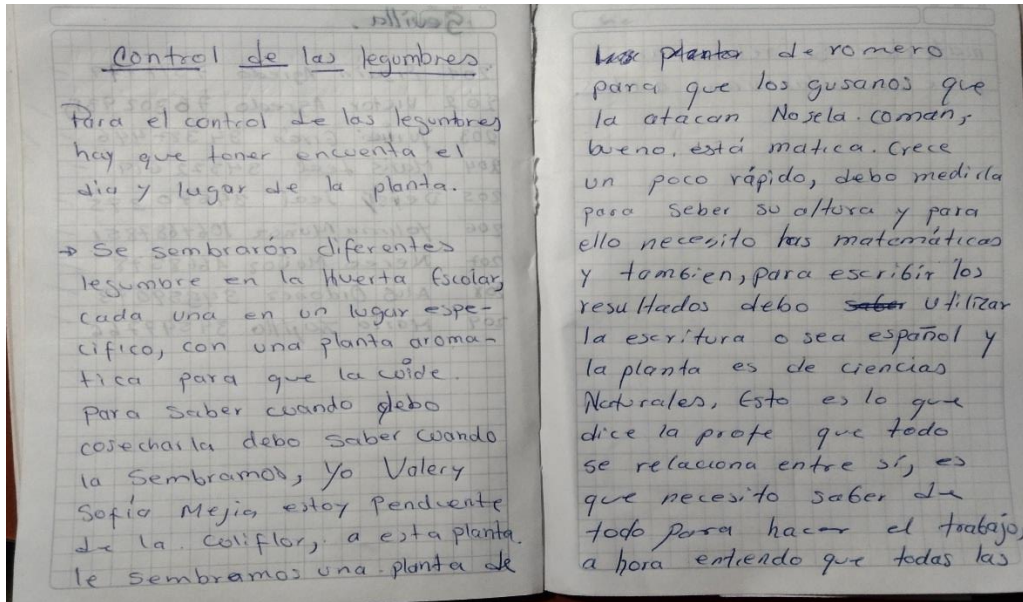 Sevilla.
Control de las legumbres
Para el control de las legumbres
hay que tener encuenta el
dia y lugar de la planta.
→ Se sembrarón diferentes
legumbre en la Huerta Escolar,
cada una en un lugar espe-
cifico, con una planta aroma-
tica para que la coide.
Para saber cuando debo
cosecharla debo saber cuando
la Sembramos, yo Valery
Sofía Mejia estoy Penduente
de la coliflor, a esta planta.
le sembramos una planta de
de romero
para que los gusanos que
la atacan No sela. coman,
bueno, está matica. Crece
un poco rápido, debo medirla
para seber su altura y para
ello necesito las matemáticas
y tambien, para escribir los
resultados debo saber utilizar
la escritura o sea español y
la planta es de ciencias
Naturales, Esto es lo que
dice la profe que todo
se relaciona entre sí, es
que necesito saber de
todo para hacer el trabajo,
a hora entiendo que todas las